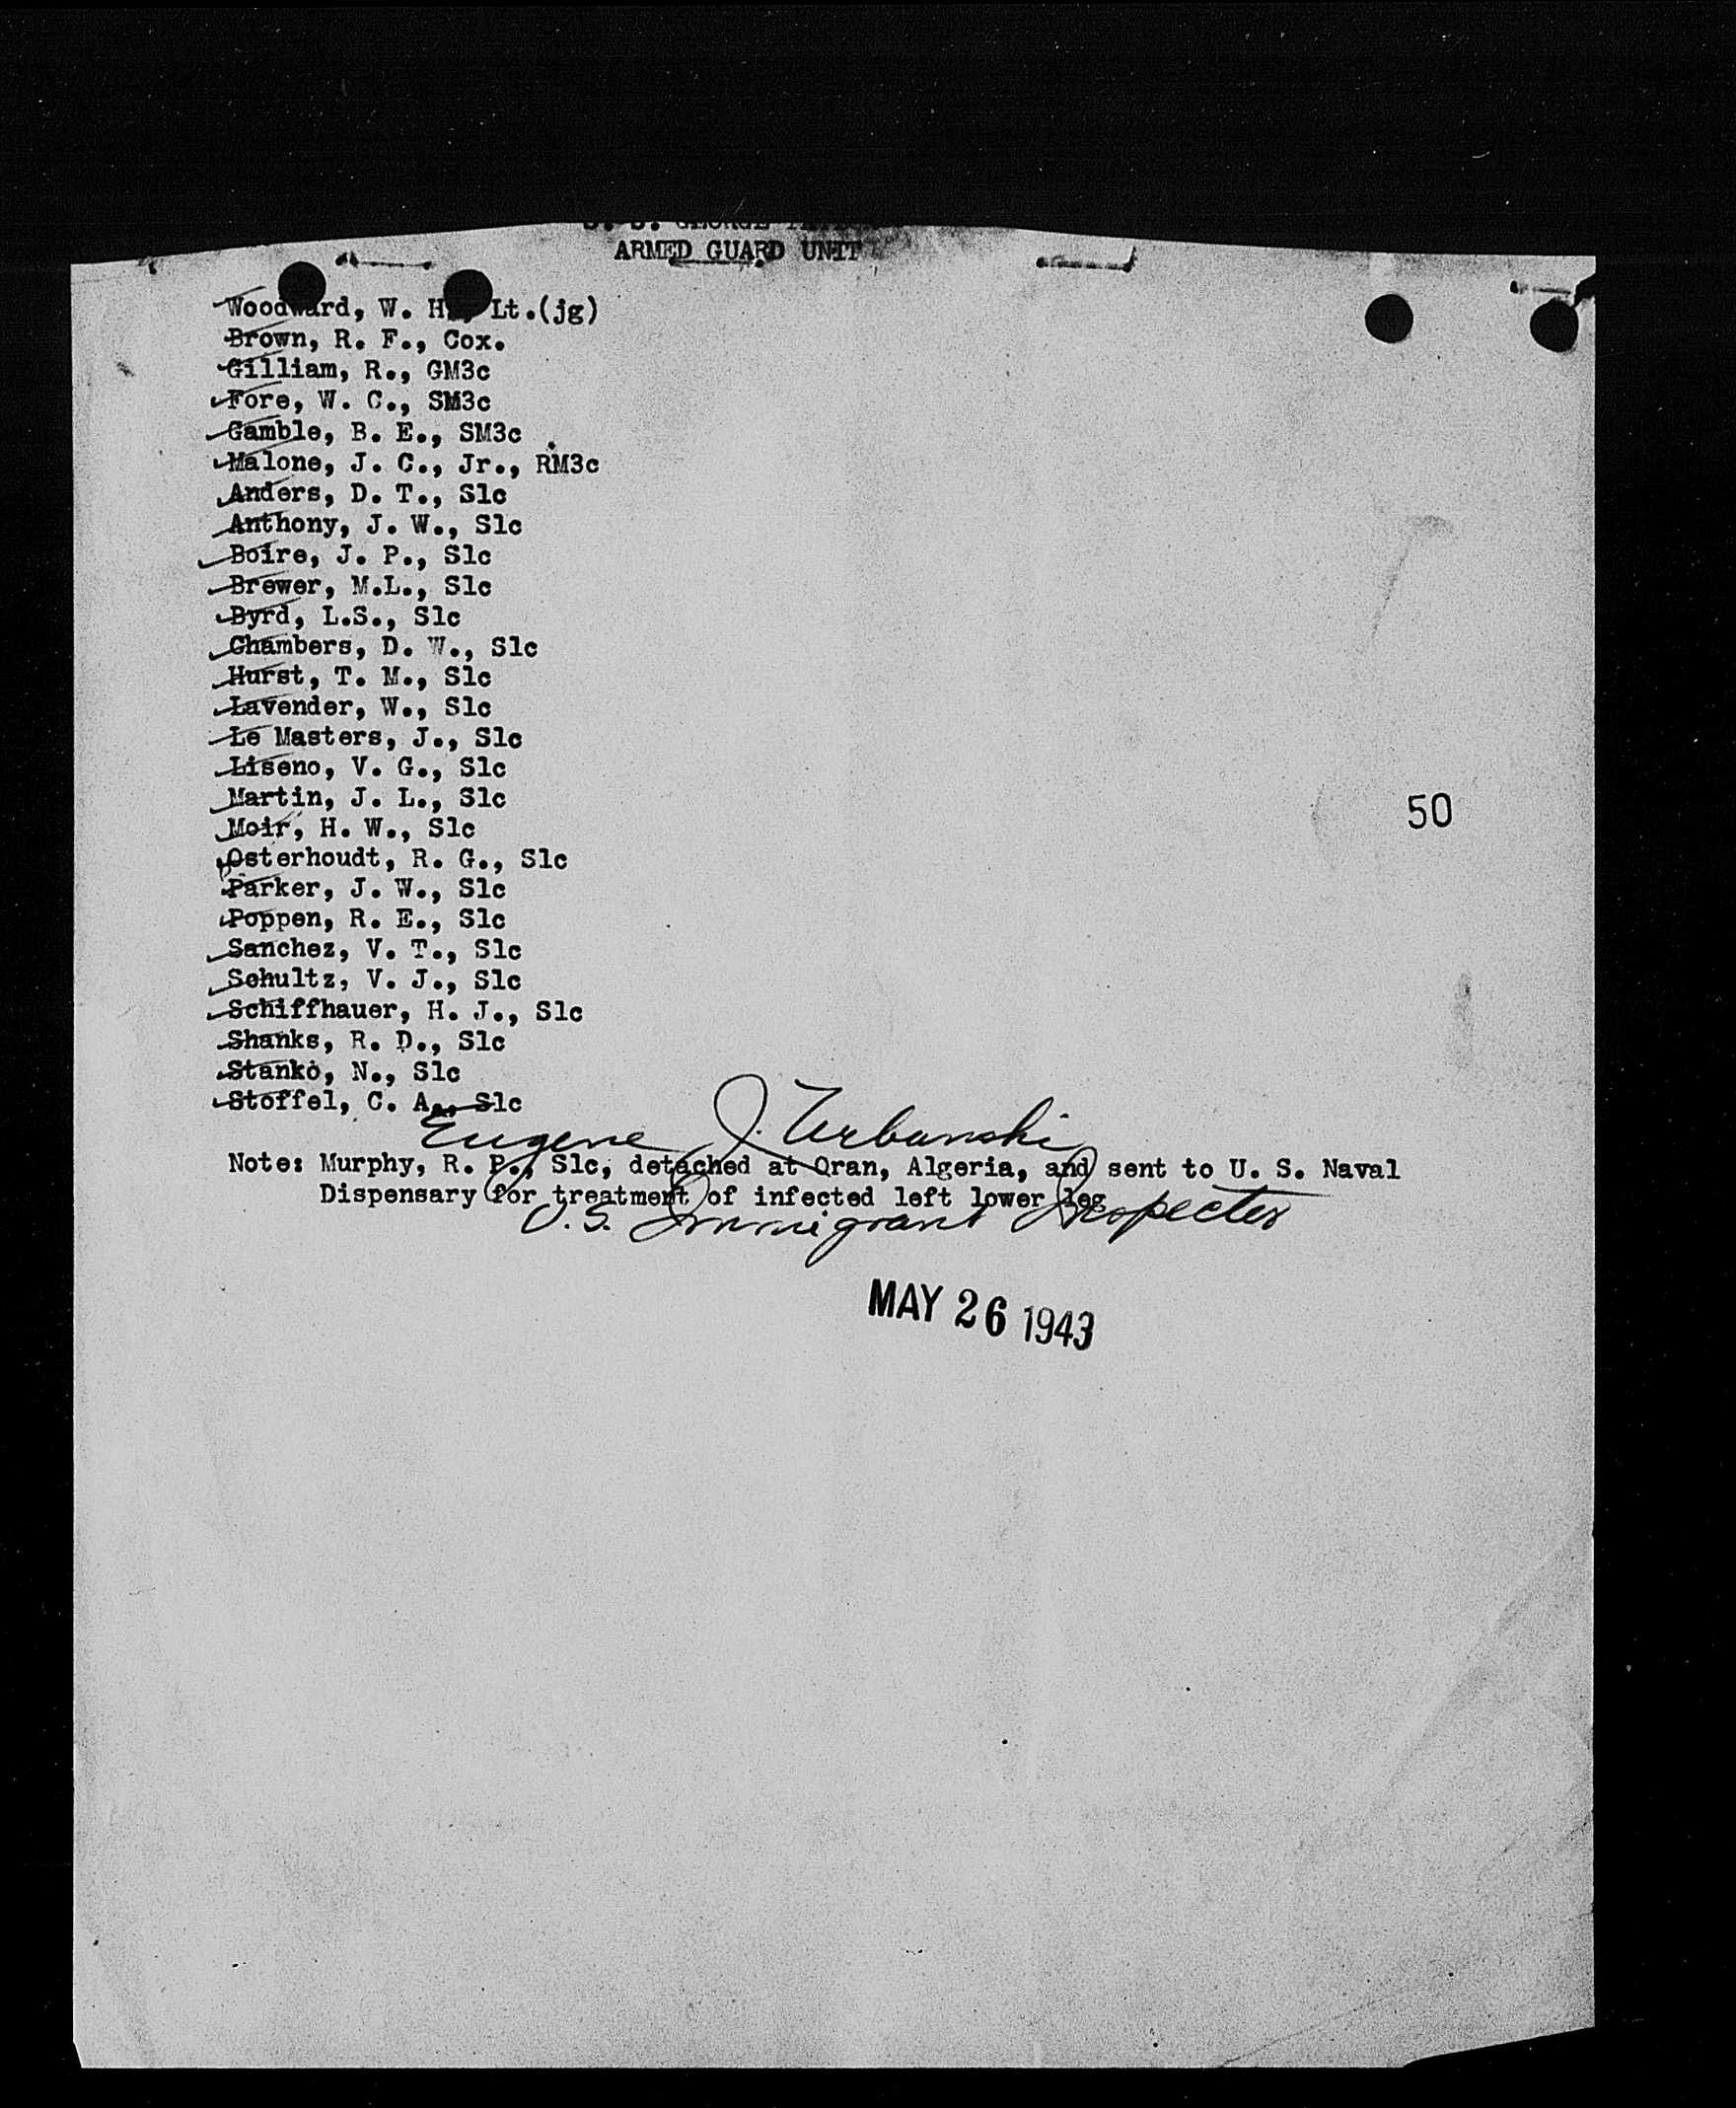 S. S. GEORGE
ARMED GUARD UNIT
Woodward, W. H., Lt.(jg)
Brown, R. F., Cox.
Gilliam, R., GM3c
Fore, W. C., SM3c
Gamble, B. E., SM3c
Malone, J. C., Jr., RM3c
Anders, D. T., S1c
Anthony, J. W., S1c
Boire, J. P., S1c
Brewer, M.L., S1c
Byrd, L.S., S1c
Chambers, D. W., S1c
Hurst, T. M., S1c
Lavender, W., S1c
Le Masters, J., S1c
Liseno, V. G., S1c
Martin, J. L., S1c
50
Moir, H. W., S1c
Osterhoudt, R. G., S1c
Parker, J. W., S1c
Poppen, R. E., S1c
Sanchez, V. T., S1c
Schultz, V. J., S1c
Schiffhauer, H. J., S1c
Shanks, R. D., S1c
Stanko, N., S1c
Stoffel, C. A., S1c
Eugene J. Urbanski
Note: Murphy, R. P., S1c, detached at Oran, Algeria, and sent to U. S. Naval
Dispensary for treatment of infected left lower leg
U.S. Immigrant Inspector
MAY 26 1943